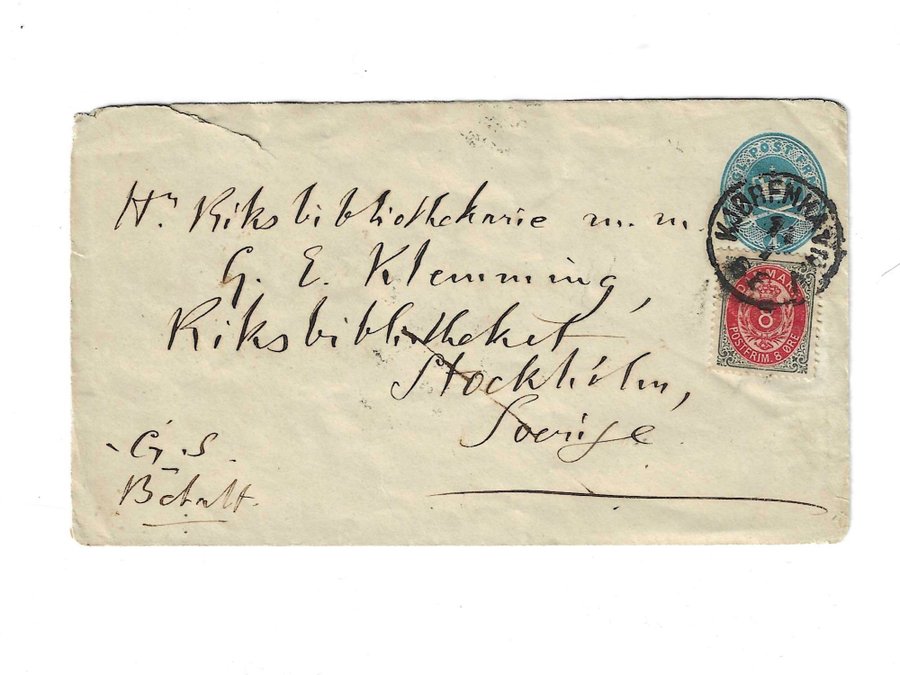 Hr Riksbibliothekarie m.m.
G. E. Klemming,
Riksbibliotheket
Stockholm,
Sverige.
Betalt.
KJØBENHAVN
DANMARK
8
POSTFRIM. 8 ØRE